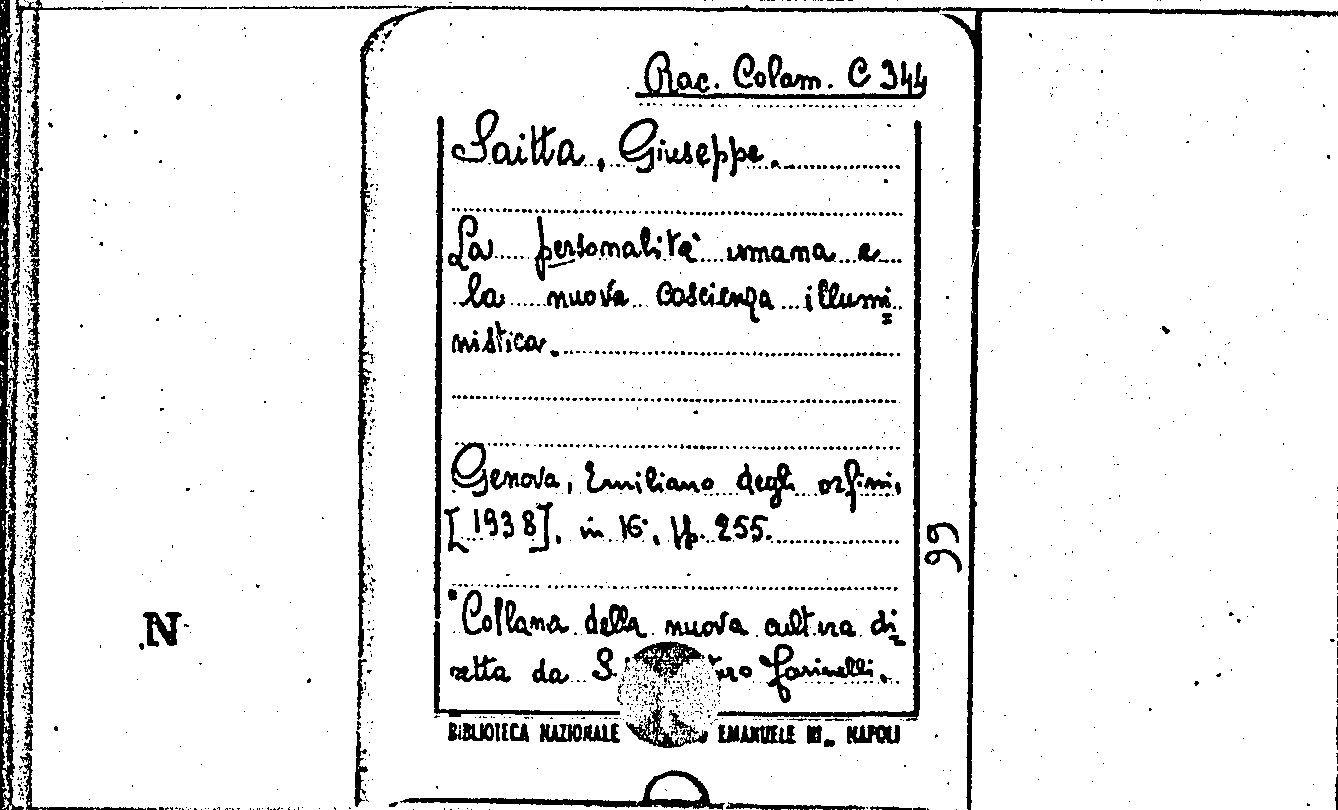 Rac. Colam. C 344
Saitta, Giuseppe.
La personalità umana e
la nuova coscienza illumi=
nistica.
Genova, Emiliano degli orfini,
[1938], in 16°, pp. 255.
"Collana della nuova cultura di=
retta da S. Farinelli.
BIBLIOTECA NAZIONALE EMANUELE III„ NAPOLI
99
N